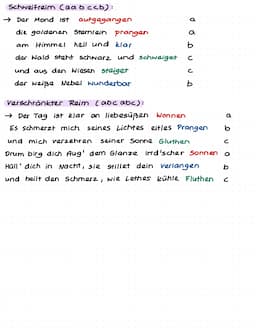 Schweifreim (aabccb):
→ Der Mond ist aufgegangen a
die goldenen Sternlein prangen a
am Himmel hell und klar b
der Wald steht schwarz und schweiget c
und aus den Wiesen steiget c
der weiße Nebel wunderbar b
Verschränkter Reim (abcabc):
→ Der Tag ist klar an liebesüßen Wonnen a
Es schmerzt mich seines Lichtes eitles Prangen b
und mich verzehren seiner Sonne Gluthen c
Drum birg dich Aug' dem Glanze irrd'scher Sonnen a
Hüll' dich in Nacht, sie stillet dein Verlangen b
und heilt den Schmerz, wie Lethes kühle Fluthen c